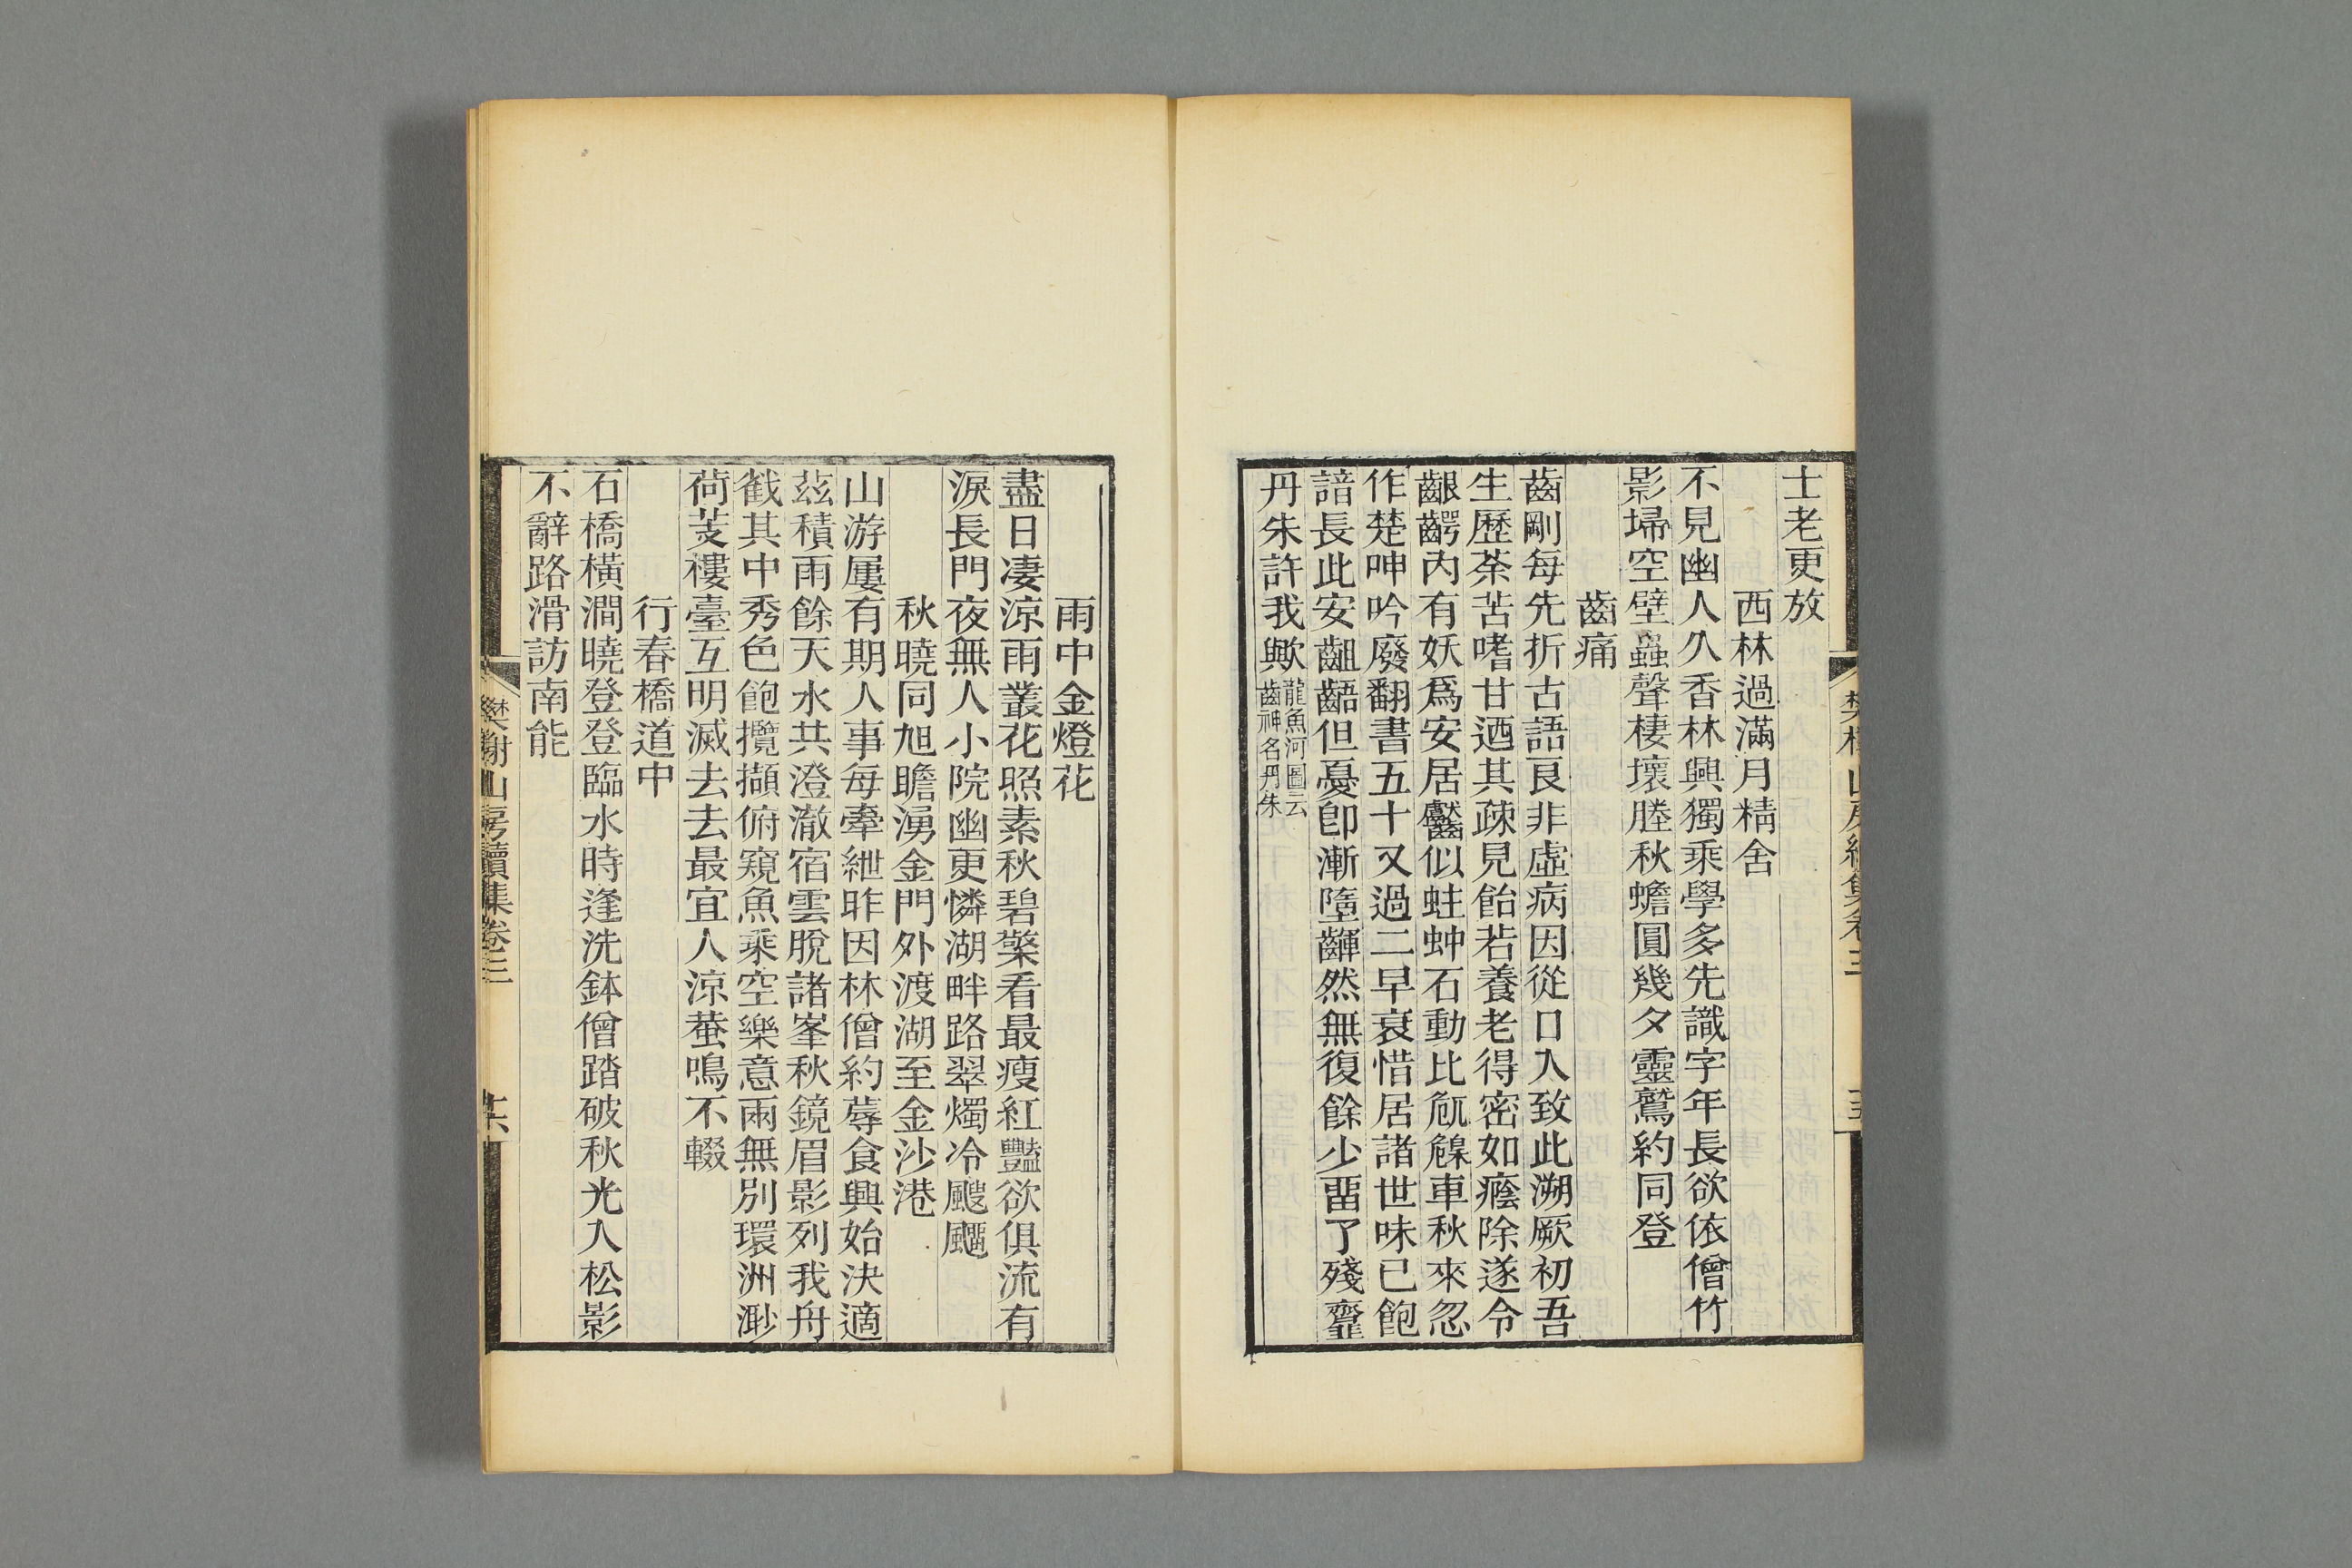 士老更放
西林過滿月精舍
不見幽人久香林興獨乘學多先識字年長欲依僧竹
影埽空壁蟲聲棲壞塍秋蟾圓幾夕靈鷲約同登
齒痛
齒剛每先折古語良非虛病因從口入致此溯厥初吾
生歷荼苦嗜甘迺其疎見飴若養老得密如癊除遂令
齦齶內有妖爲安居齾似蛀蚛石動比𡰠臲車秋來忽
作楚呻吟廢翻書五十又過二早衰惜居諸世味已飽
諳長此安齟齬但憂卽漸墮齳然無復餘少畱了殘齏
丹朱許我歟
龍魚河圖云
齒神名丹朱
樊榭山房續集卷三
十五
雨中金燈花
盡日凄涼雨叢花照素秋碧檠看最瘦紅豔欲俱流有
淚長門夜無人小院幽更憐湖畔路翠燭冷颼飀
秋曉同旭瞻湧金門外渡湖至金沙港
山游屢有期人事每牽紲昨因林僧約蓐食興始決適
茲積雨餘天水共澄澈宿雲脫諸峯秋鏡眉影列我舟
截其中秀色飽攬擷俯窺魚乘空樂意兩無別環洲渺
荷芰樓臺互明滅去去最宜人涼蛬鳴不輟
行春橋道中
石橋橫澗曉登登臨水時逢洗鉢僧踏破秋光入松影
不辭路滑訪南能
樊榭山房續集卷三
十六